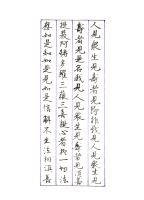 人見眾生見壽者見即非我見人見眾生見
壽者見是名我見人見眾生見壽者見須菩
提發阿耨多羅三藐三菩提心者於一切法
應如是知如是見如是信解不生法相須菩